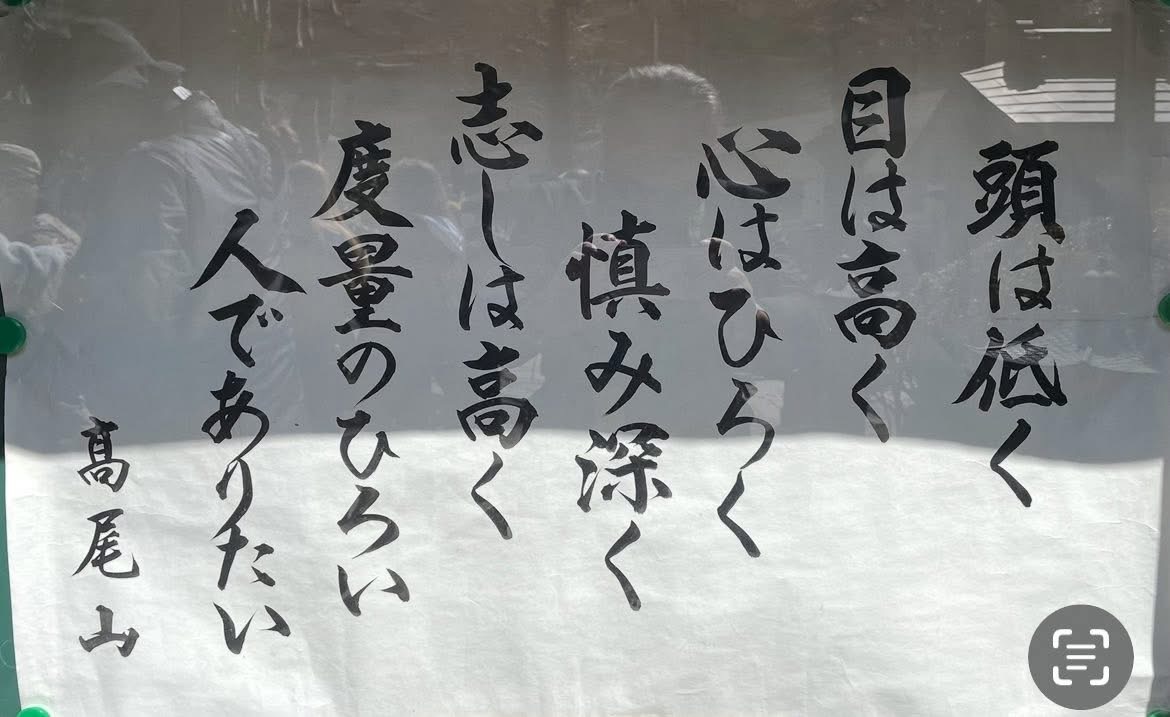 頭は低く
目は高く
心はひろく
慎み深く
志しは高く
度量のひろい
人でありたい
髙尾山